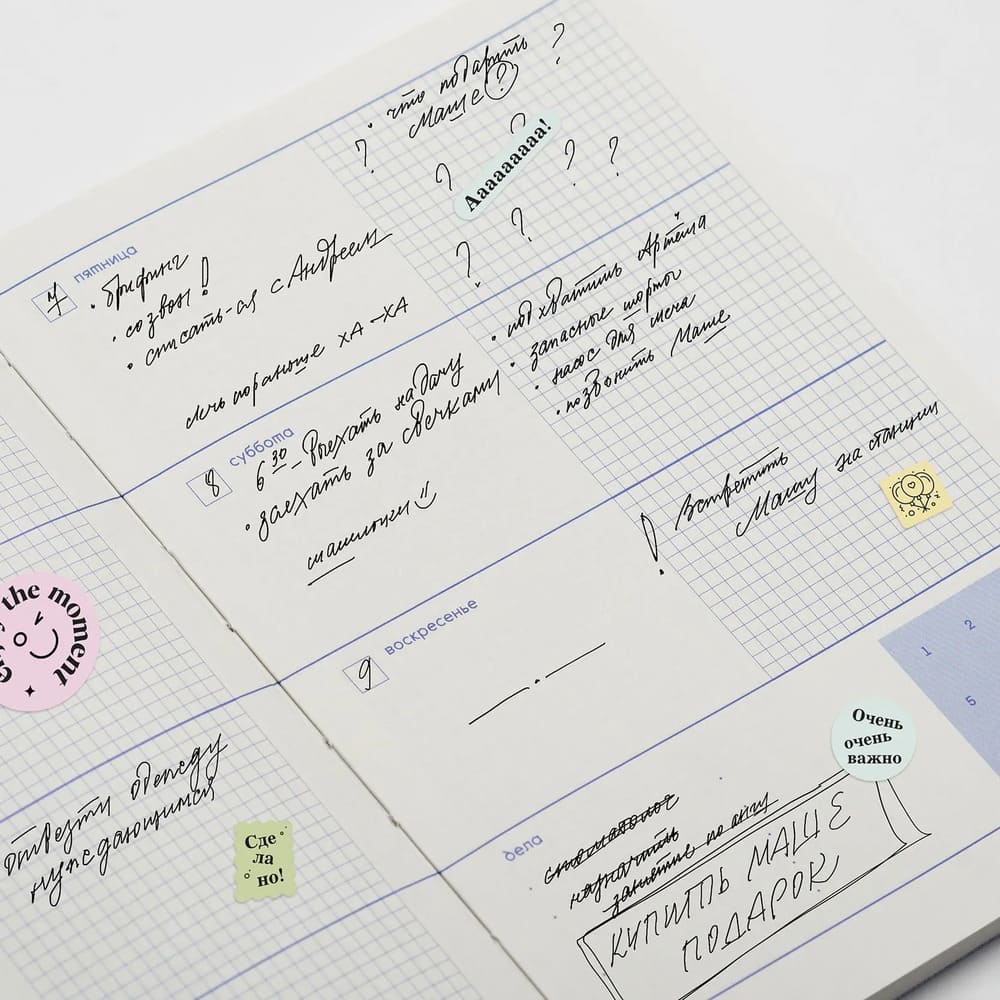 the moment
отвезти одежду
нуждающимся
Сде
ла
но!
пятница
7
• брифинг
• созвон!
• списать-ся с Андреем
лечь пораньше ХА-ХА
• что подарить ?
Маше?
? ? ? ? ? ? ?
Ааааааааа!
суббота
8
6 30 – выехать на дачу
• заехать за свечками
шашлыки
• подхватить Артёма
• запасные шорты
• насос для мяча
• позвонить Маше
воскресенье
9
! Встретить
Машу на станции
1 2
5
дела
стоматолог
назначить
занятие по англ
КУПИТЬ МАШЕ
ПОДАРОК
Очень
очень
важно